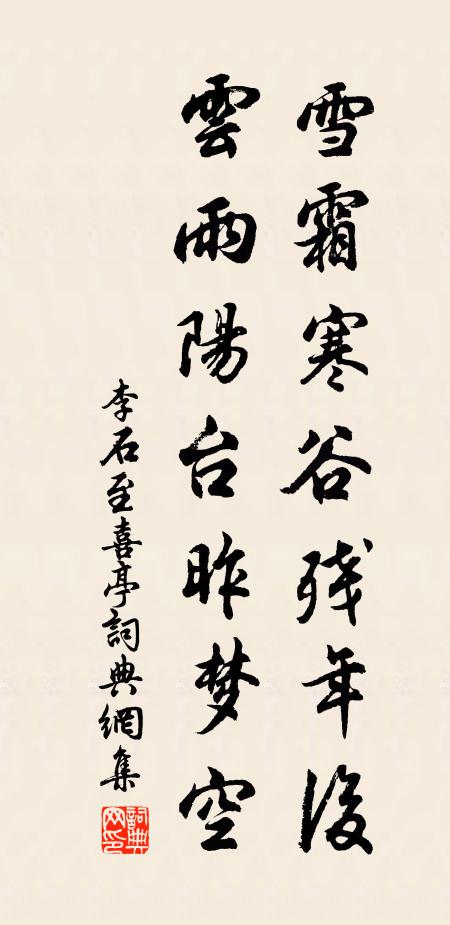 雪霜寒谷残年後
雲雨陽台昨梦空
李石至喜亭詞典網集
詞典网印